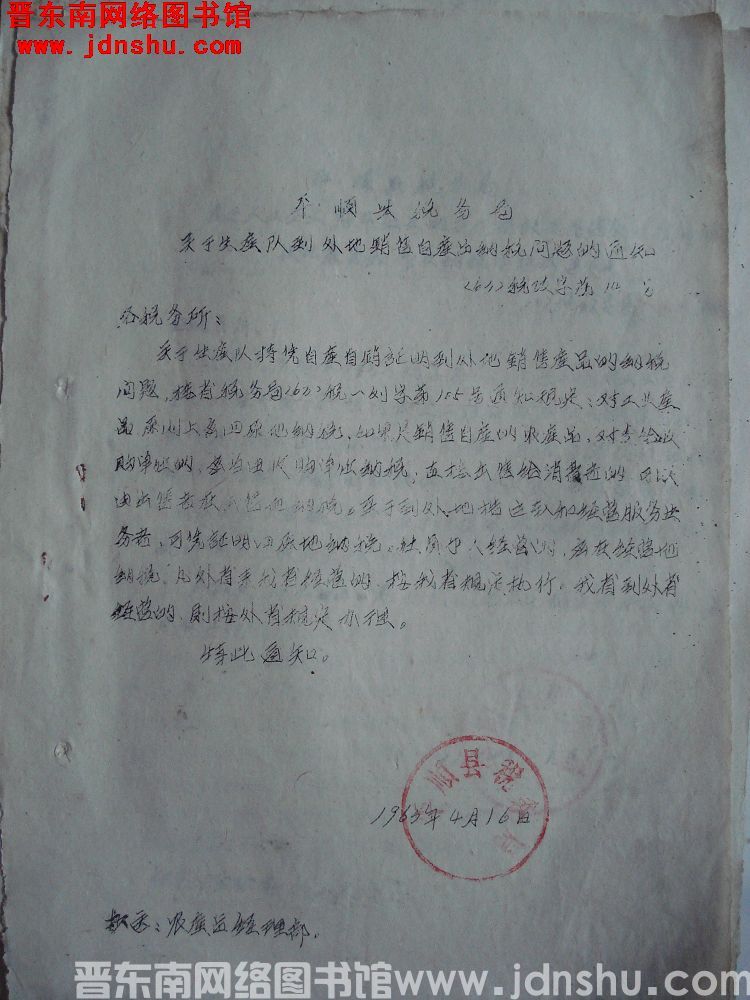 晋东南网络图书馆
www.jdnshu.com
平顺县税务局
关于生产队到外地销售自产品纳税问题的通知
(63)税政字第12号
各税务所:
关于生产队持凭自产自销证明到外地销售产品的纳税
问题,接省税务局(63)税一刘字第105号通知规定:对工业产
品原则上离回原地纳税,如果是销售自产的农产品,对售给收
购单位的,应当由收购单位纳税,直接出售给消费者的,可以
由出售者在销售地纳税。至于到外地搞运输和经营服务业
务者,可凭证明回原地纳税。社员个人经营的,应在经营地
纳税。凡外省来我省经营的,按我省规定执行。我省到外省
经营的,则按外省规定办理。
特此通知。
顺县税务局
1963年4月16日
抄送:农产品经理部。
晋东南网络图书馆www.jdnshu.com